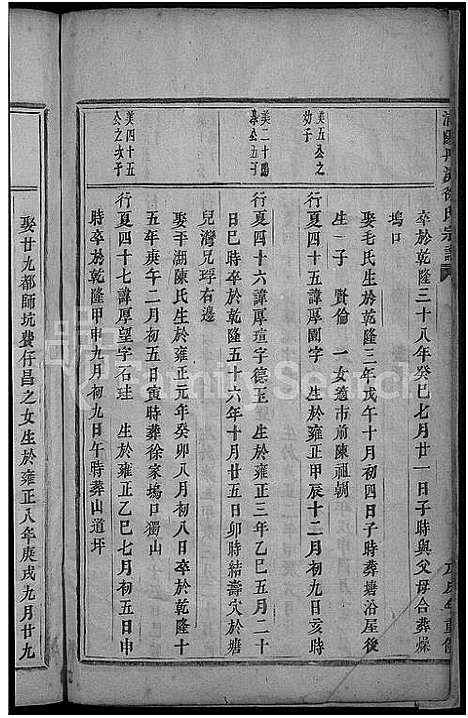 卒於乾隆三十八年癸巳七月廿一日子時與父母合葬燥
塢口
娶毛氏生於乾隆三年戊午十月初四日子時葬塘沿屋後
生一子 賢倫 一女適市前陳祖朝
美五公之
幼子
行夏四十五諱厚園字 生於雍正甲辰十二月初九日亥時
美二十鵬
舉公五子
行夏四十六諱厚瑄字德玉 生於雍正三年乙巳五月二十
日巳時卒於乾隆五十六年十月廿五日卯時結壽穴於塘
兒灣兄琈右邊
娶平湖陳氏生於雍正元年癸卯八月初八日卒於乾隆十
五年庚午二月初五日寅時葬徐家塢口獨山
美四十五
公之次子
行夏四十七諱厚望字石珪 生於雍正乙巳七月初五日申
時卒於乾隆甲申九月初九日午時葬山道坪
娶廿九都師坑費仔昌之女生於雍正八年庚戌九月廿九
FamilySearch